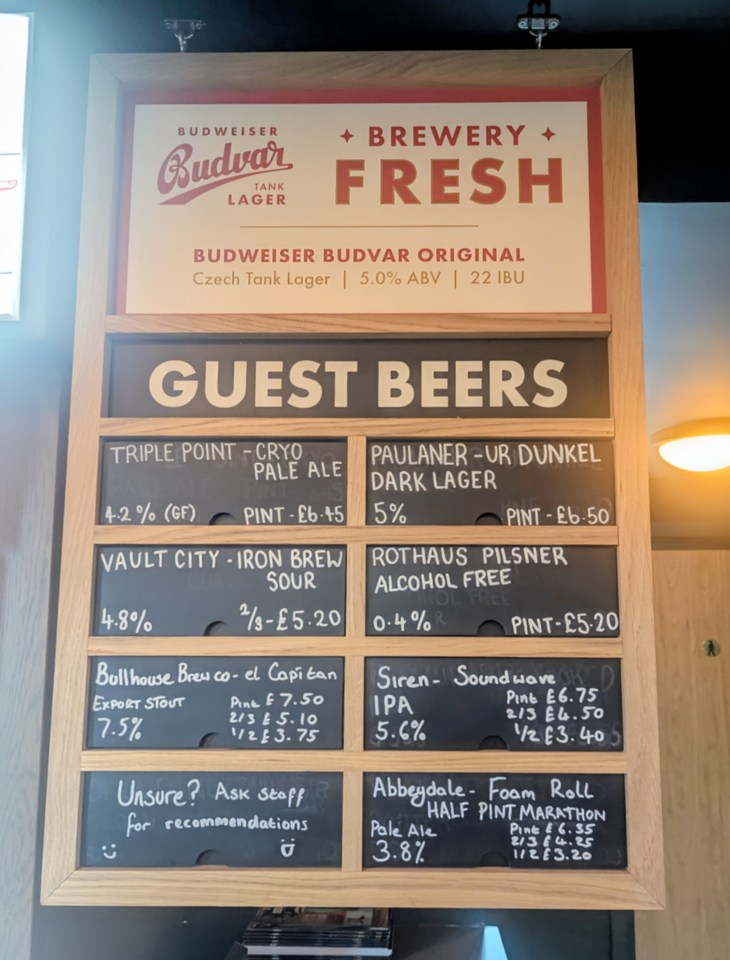 BUDWEISER
Budvar
TANK
LAGER
BREWERY
FRESH
BUDWEISER BUDVAR ORIGINAL
Czech Tank Lager | 5.0% ABV | 22 IBU
GUEST BEERS
TRIPLE POINT - CRYO
PALE ALE
4.2% (GF) PINT - £6.45
PAULANER - UR DUNKEL
DARK LAGER
5% PINT - £6.50
VAULT CITY - IRON BREW
SOUR
4.8% 2/3 - £5.20
ROTHAUS PILSNER
ALCOHOL FREE
0.4% PINT - £5.20
Bullhouse Brew co - el Capitan
EXPORT STOUT Pint £7.50
7.5% 2/3 £5.10
1/2 £3.75
Siren - Soundwave
IPA Pint £6.75
5.6% 2/3 £4.50
1/2 £3.40
Unsure? Ask Staff
for recommendations
Abbeydale - Foam Roll
HALF PINT MARATHON
Pale Ale Pint £6.35
3.8% 2/3 £4.25
1/2 £3.20